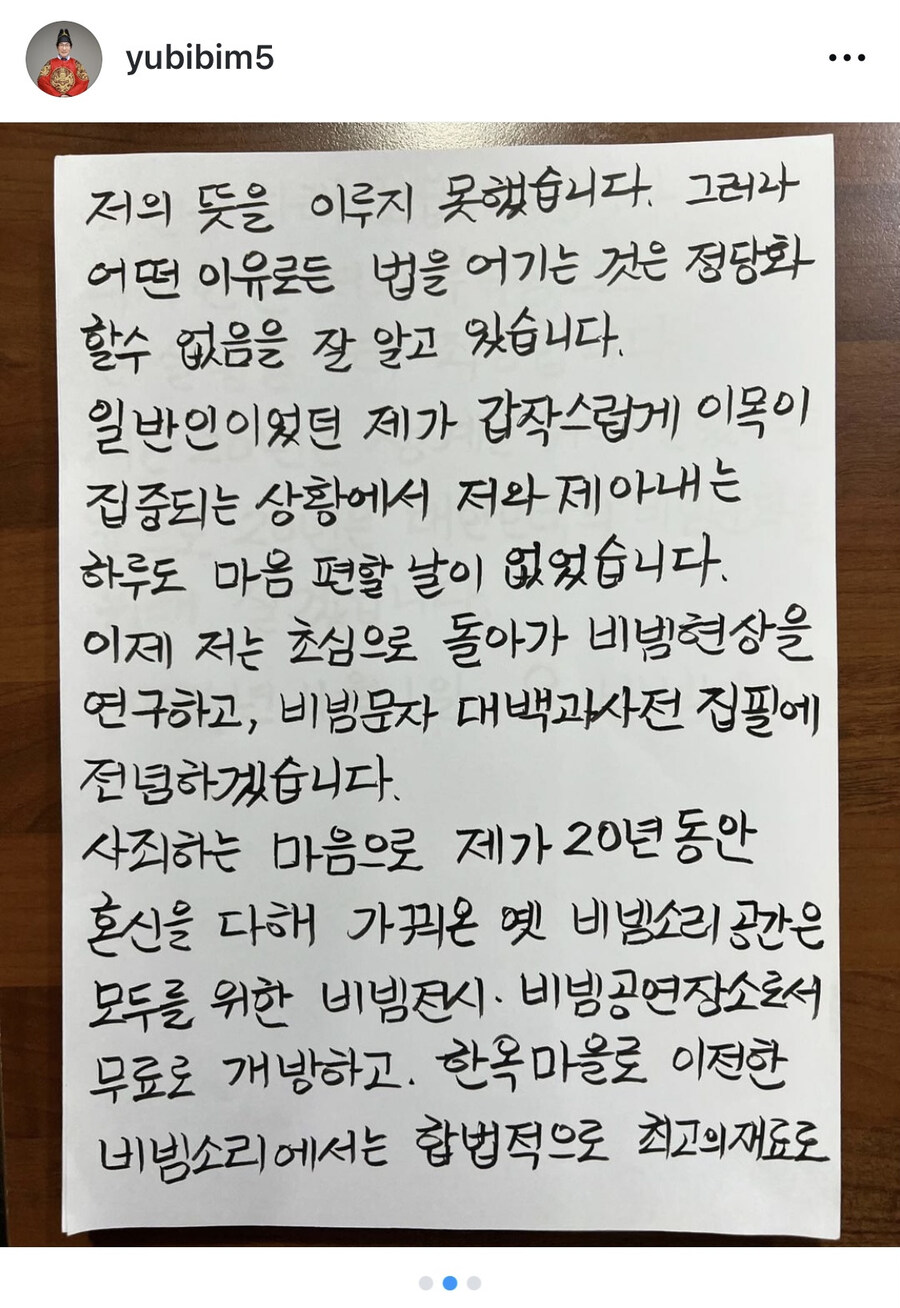 yubibim5
저의 뜻을 이루지 못했습니다. 그러나
어떤 이유로든 법을 어기는 것은 정당화
할수 없음을 잘 알고 있습니다.
일반인이었던 제가 갑작스럽게 이목이
집중되는 상황에서 저와 제아내는
하루도 마음 편할 날이 없었습니다.
이제 저는 초심으로 돌아가 비빔현상을
연구하고, 비빔문자 대백과사전 집필에
전념하겠습니다.
사죄하는 마음으로 제가 20년 동안
혼신을 다해 가꿔온 옛 비빔소리 공간은
모두를 위한 비빔전시·비빔공연장소로서
무료로 개방하고. 한옥마을로 이전한
비빔소리에서는 합법적으로 최고의재료로